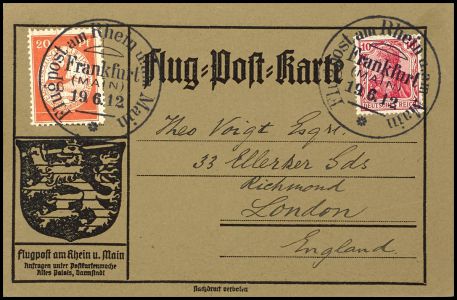 20
Flugpost am Rhein u. Main
Frankfurt
(MAIN)
19.6.12
Flug-Post-Karte
10
Flugpost am Rhein u. Main
Frankfurt
(MAIN)
19.6.12
Theo Voigt Esqr.
33 Ellerker Gds
Richmond
London
England.
Flugpost am Rhein u. Main
Anfragen unter Postkartenwoche
Altes Palais, Darmstadt
Nachdruck verboten